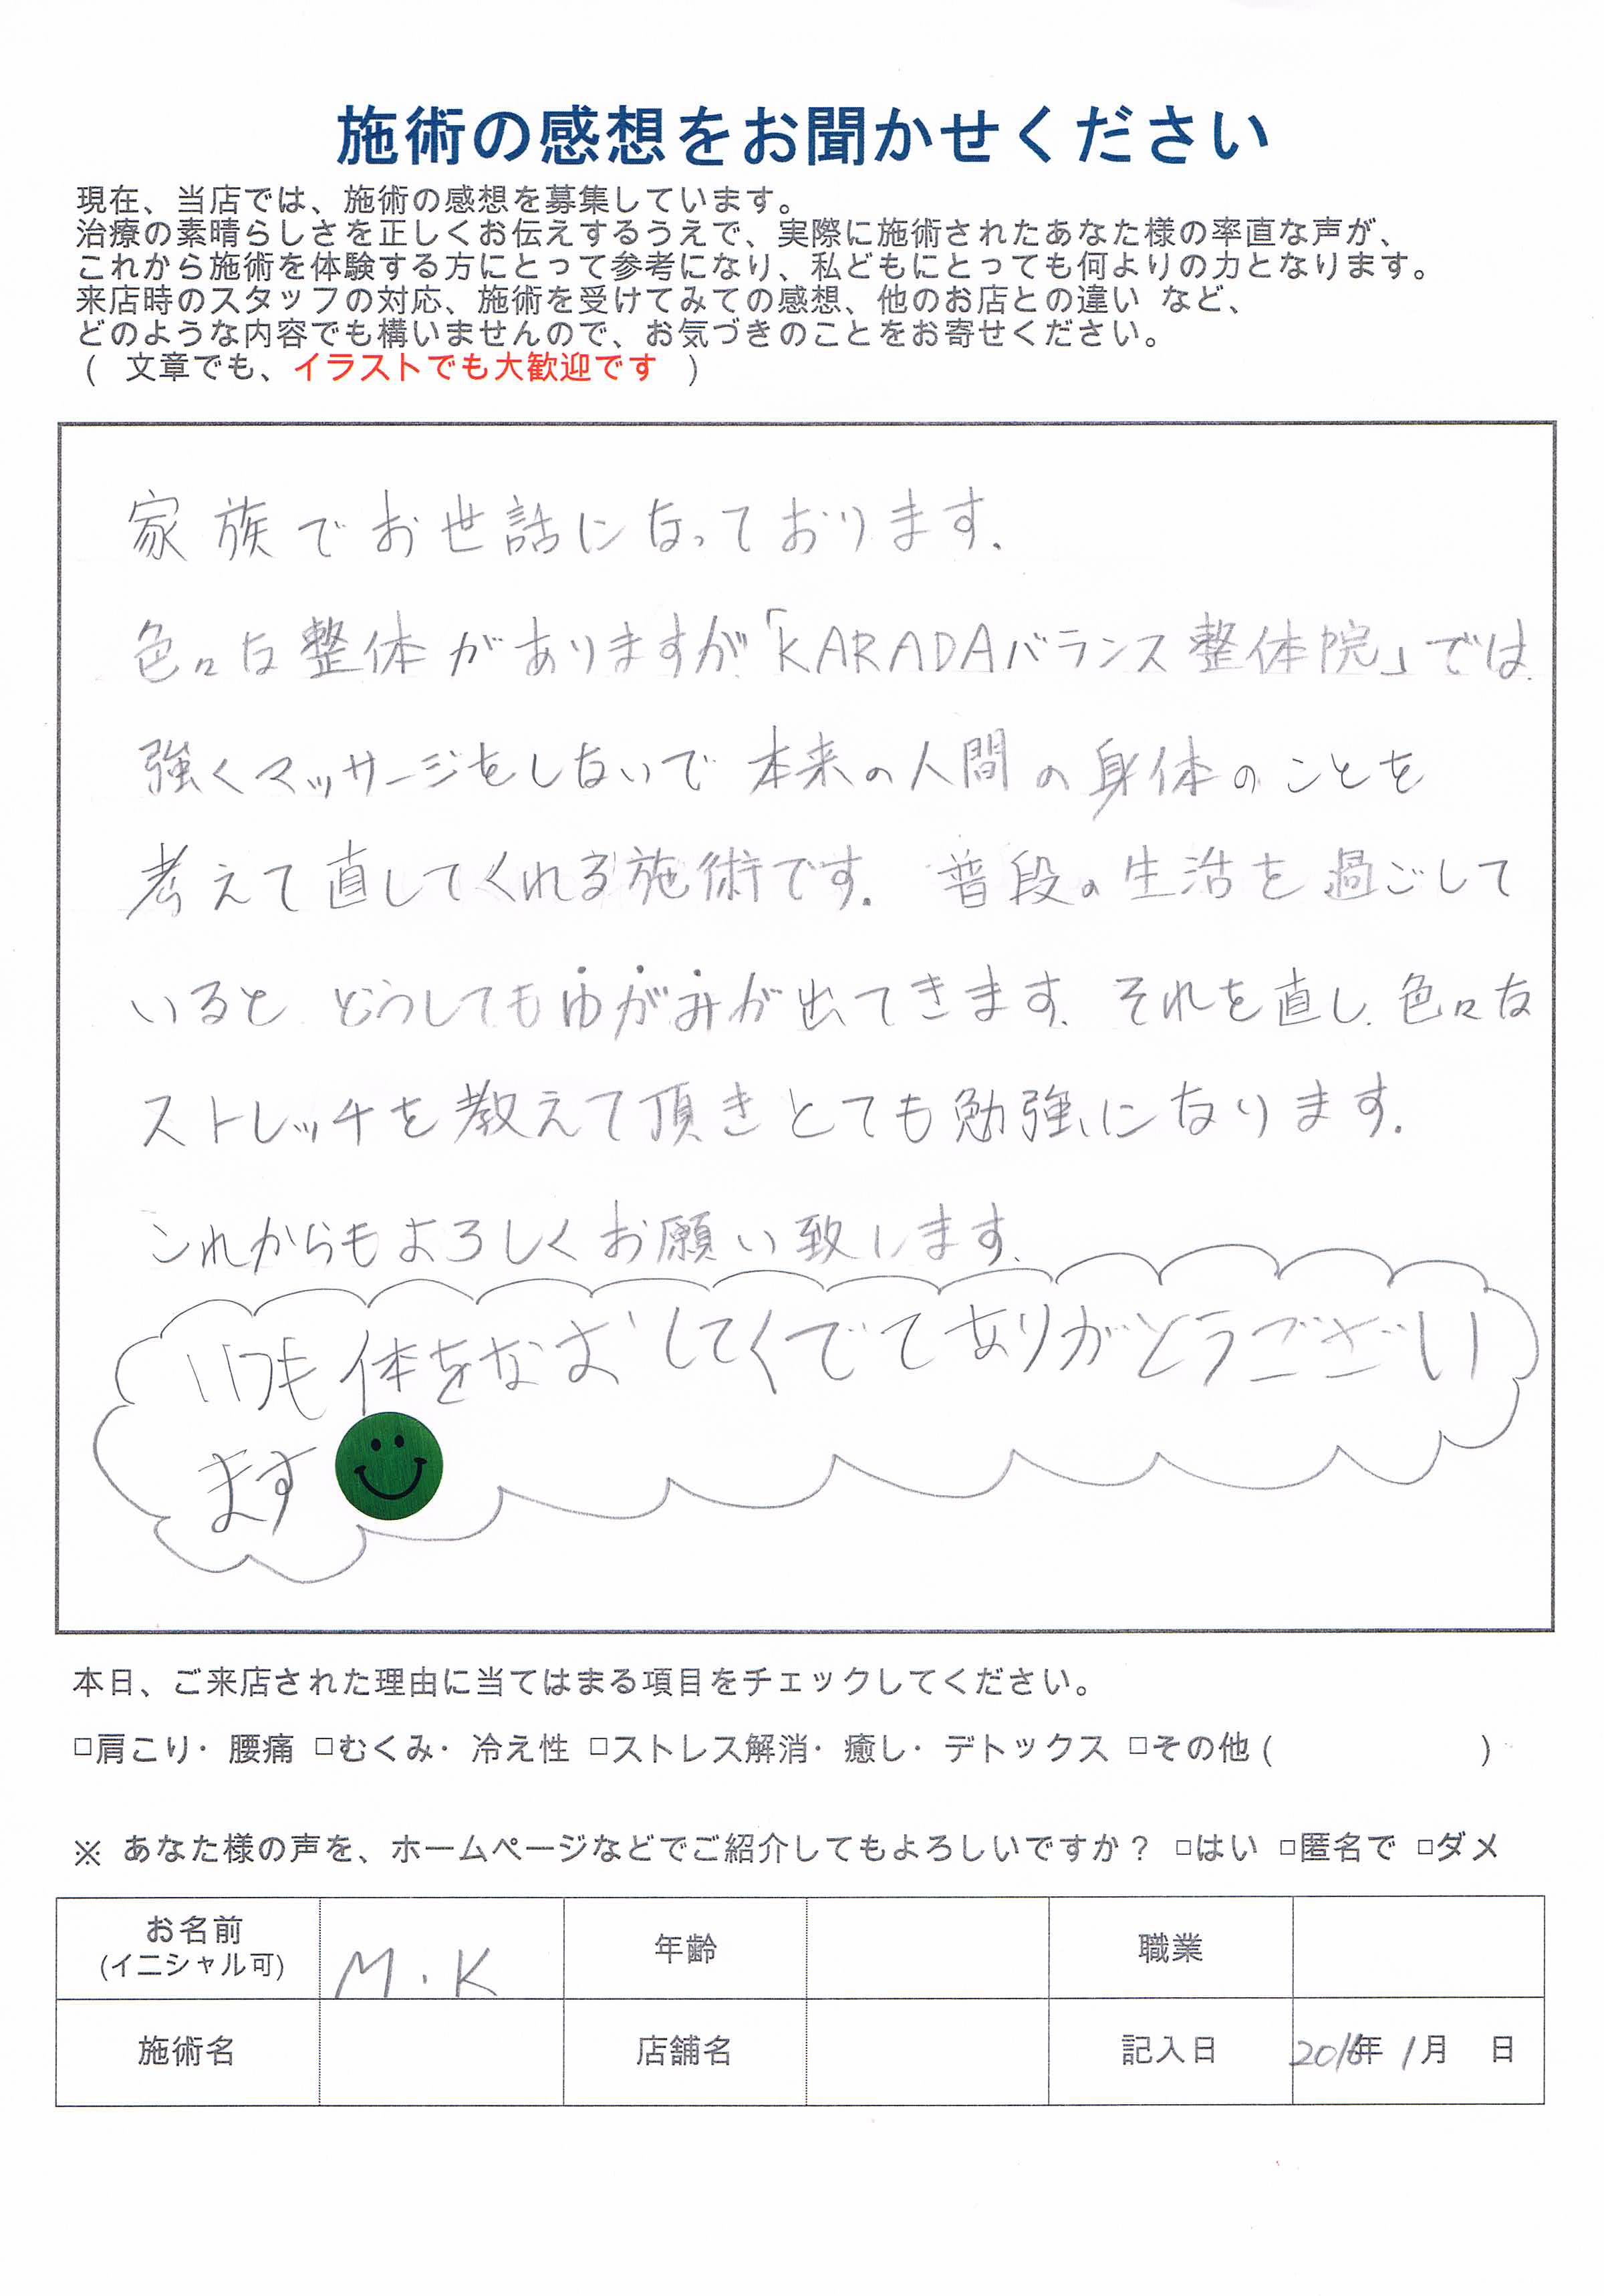 施術の感想をお聞かせください
現在、当店では、施術の感想を募集しています。
治療の素晴らしさを正しくお伝えするうえで、実際に施術されたあなた様の率直な声が、
これから施術を体験する方にとって参考になり、私どもにとっても何よりの力となります。
来店時のスタッフの対応、施術を受けてみての感想、他のお店との違い など、
どのような内容でも構いませんので、お気づきのことをお寄せください。
( 文章でも、イラストでも大歓迎です )
家族でお世話になっております.
色々な整体がありますが「KARADAバランス整体院」では
強くマッサージをしないで 本来の人間の身体のことを
考えて直してくれる施術です. 普段の生活を過ごして
いると どうしてもゆがみが出てきます. それを直し. 色々な
ストレッチを教えて頂きとても勉強になります.
これからもよろしくお願い致します.
いつも体をなおしてくでてありがとうござい
ます
本日、ご来店された理由に当てはまる項目をチェックしてください。
□肩こり・腰痛 □むくみ・冷え性 □ストレス解消・癒し・デトックス □その他 ( )
※ あなた様の声を、ホームページなどでご紹介してもよろしいですか？ □はい □匿名で □ダメ
お名前 (イニシャル可) M.K 年齢 職業
施術名 店舗名 記入日 2016年 1月 日